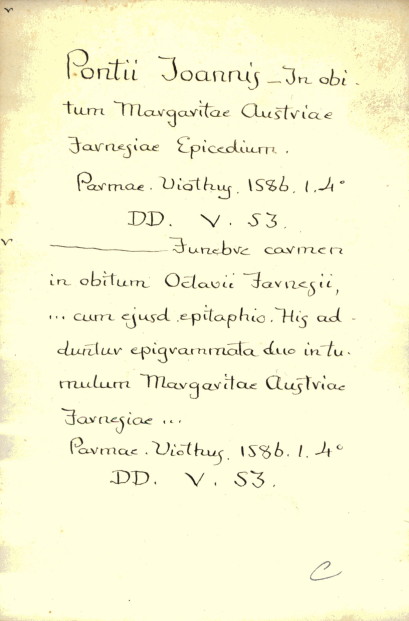 Pontii Joannis _ In obi-
tum Margaritae Austriae
Farnesiae Epicedium.
Parmae. Viothus. 1586. 1. 4°
DD. V. 53.
——— Funebre carmen
in obitum Octavii Farnesii,
... cum ejusd epitaphio. His ad-
duntur epigrammata duo in tu-
mulum Margaritae Austriae
Farnesiae ...
Parmae. Viothus. 1586. 1. 4°
DD. V. 53.
C